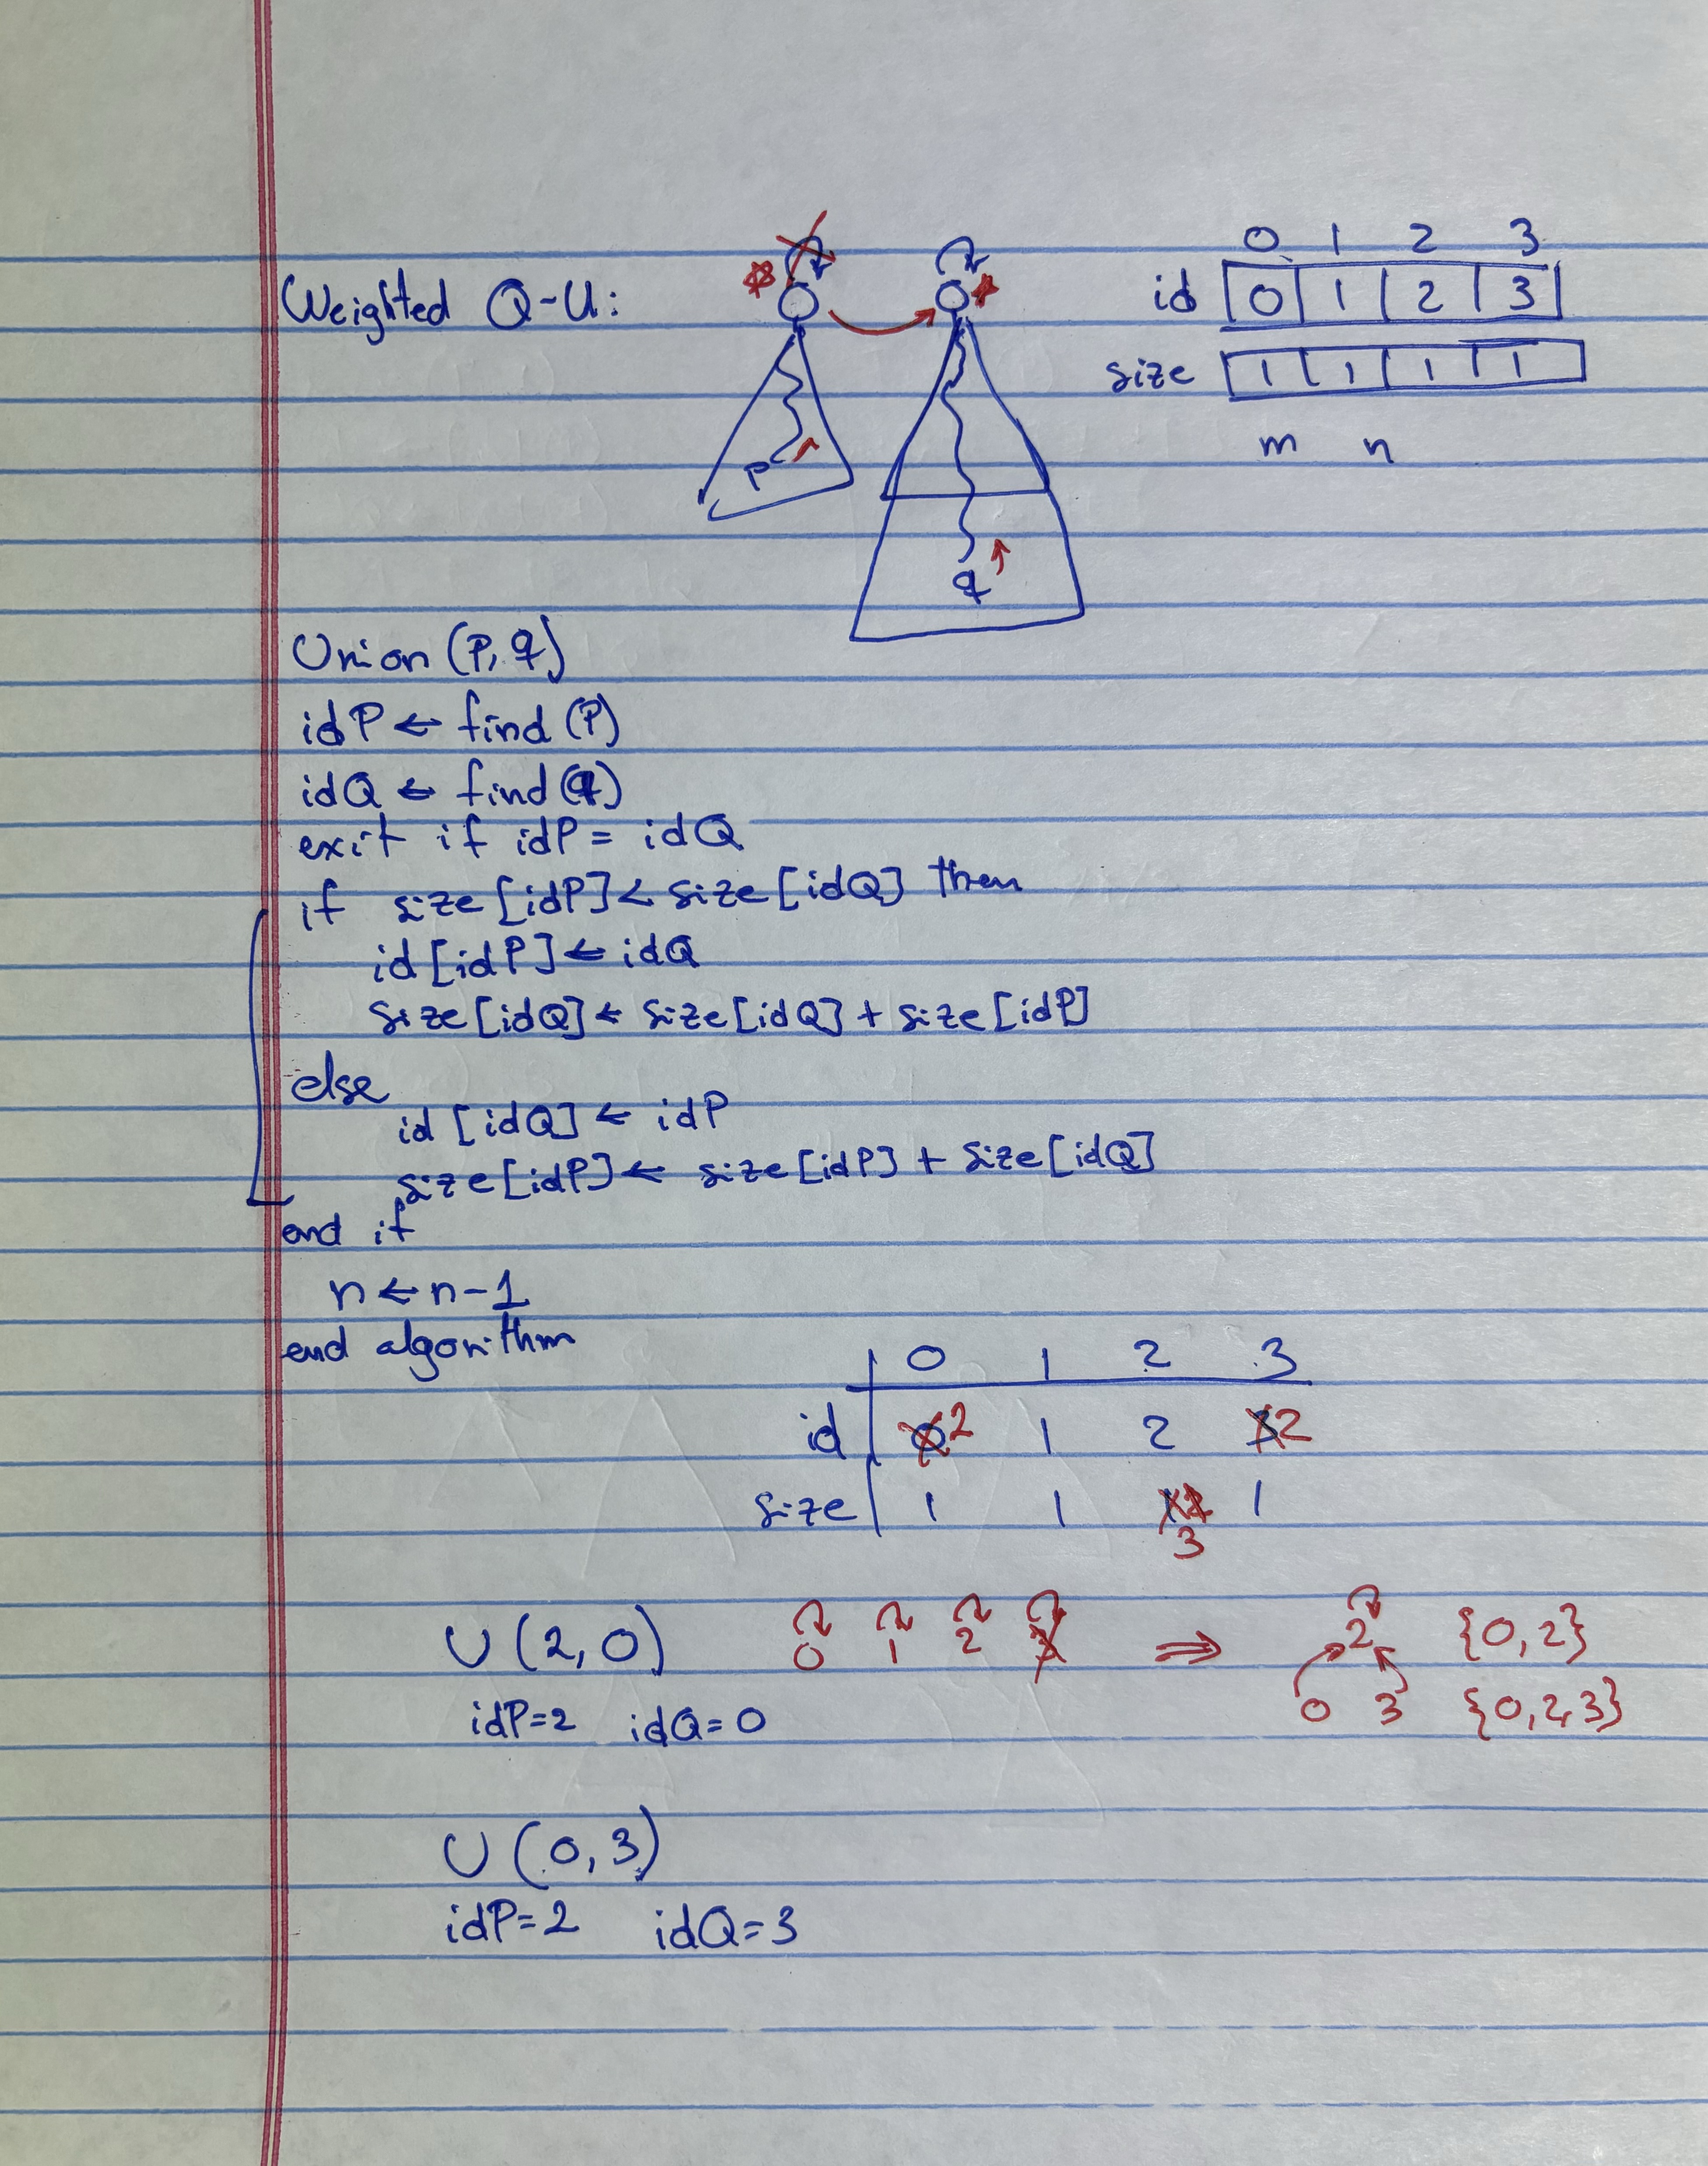 0 1 2 3
Weighted Q-U: id 0 1 2 3
size 1 1 1 1
m n
p
q
Union (P, q)
idP ← find (P)
idQ ← find (q)
exit if idP = idQ
if size [idP] < size [idQ] then
id [idP] ← idQ
size [idQ] ← size [idQ] + size [idP]
else
id [idQ] ← idP
size [idP] ← size [idP] + size [idQ]
end if
n ← n - 1
end algorithm
0 1 2 3
id 0 2 1 2 3 2
size 1 1 1 2 1
3
U (2, 0) 0 1 2 3 ⇒ 2 {0, 2}
idP=2 idQ=0 0 3 {0, 2, 3}
U (0, 3)
idP=2 idQ=3